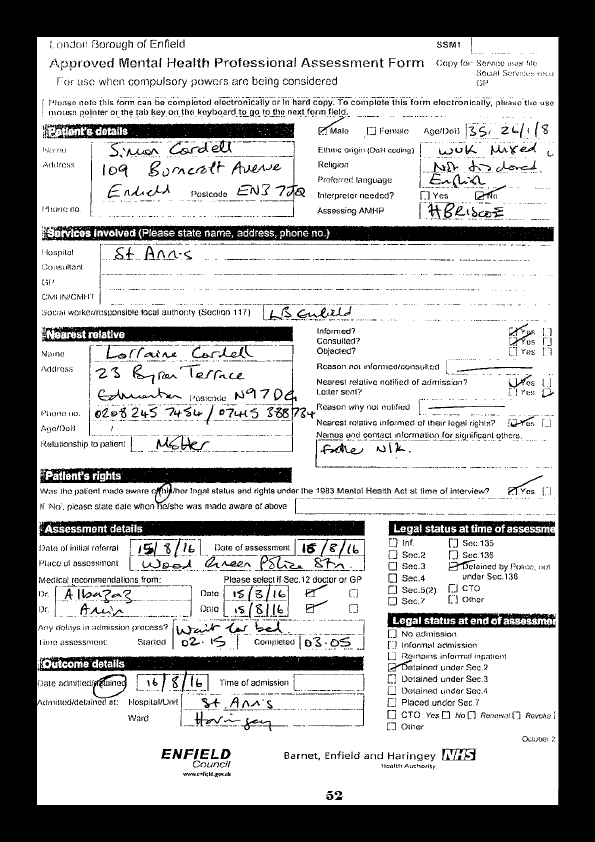 London Borough of Enfield SSM1
Approved Mental Health Professional Assessment Form Copy for: Service user file
Social Services
For use when compulsory powers are being considered GP
Please note this form can be completed electronically or in hard copy. To complete this form electronically, please the use
mouse pointer or the tab key on the keyboard to go to the next form field.
Patient's details Male Female Age/DoB 35.
Name Simon Cordell Ethnic origin (DoH coding) Mixed
Address 109 Burncroft Avenue Religion Not disclosed
Preferred language English
Enfield Postcode EN3 7JQ Interpreter needed? Yes No
Phone no. Assessing AMHP H BRISCOE
Services involved (Please state name, address, phone no.)
Hospital St Ann's
Consultant
GP
CMHN/CMHT
Social worker/responsible local authority (Section 117) LB Enfield
Nearest relative Informed? Yes
Consulted? Yes
Name Lorraine Cordell Objected? Yes
Address 23 Byron Terrace Reason not informed/consulted
Nearest relative notified of admission? Yes
Edmonton Postcode N9 7DG Letter sent? Yes
Phone no. 0208 245 7454 / 07445 388734 Reason why not notified
Age/DoB / Nearest relative informed of their legal rights? Yes
Names and contact information for significant others.
Relationship to patient Mother N/K.
Patient's rights
Was the patient made aware of his/her legal status and rights under the 1983 Mental Health Act at time of interview? Yes
If 'No', please state date when he/she was made aware of above
Assessment details Legal status at time of assessme
Date of initial referral 15/8/16 Date of assessment 15/8/16 Inf. Sec.135
Place of assessment Wood Green Police Stn. Sec.2 Sec.136
Medical recommendations from: Please select if Sec.12 doctor or GP Sec.3 Detained by Police, not
under Sec.136
Dr. Albazaz Date 15/8/16 Sec.4
Sec.5(2) CTO
Dr. Amin Date 15/8/16 Sec.7 Other
Any delays in admission process? Wait for bed Legal status at end of assessmer
Time assessment: Started 02.15 Completed 03.05 No admission
Informal admission
Remains informal inpatient
Outcome details Detained under Sec.2
Date admitted/detained 16/8/16 Time of admission Detained under Sec.3
Detained under Sec.4
Admitted/detained at: Hospital/Unit St Ann's Placed under Sec.7
Ward Haringey CTO Yes No Renewal Revoke
Other
October 2
ENFIELD Council Barnet, Enfield and Haringey NHS
Health Authority
www.enfield.gov.uk
52